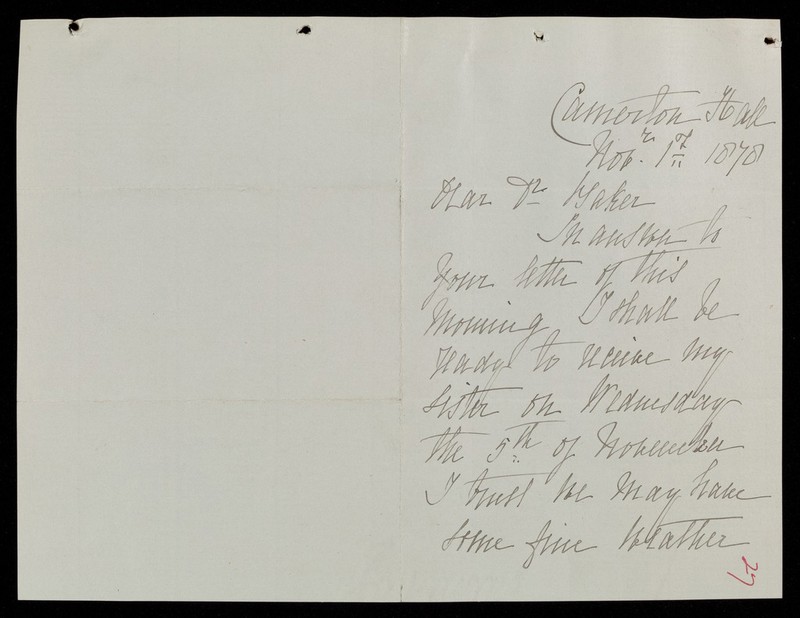 Camerton Hall
Nov.r 1st 1878
Dear Dr Baker
In answer to
your letter of this
Morning I shall be
ready to receive my
sister on Wednesday
the 5th of November
I trust we may have
some fine weather
27